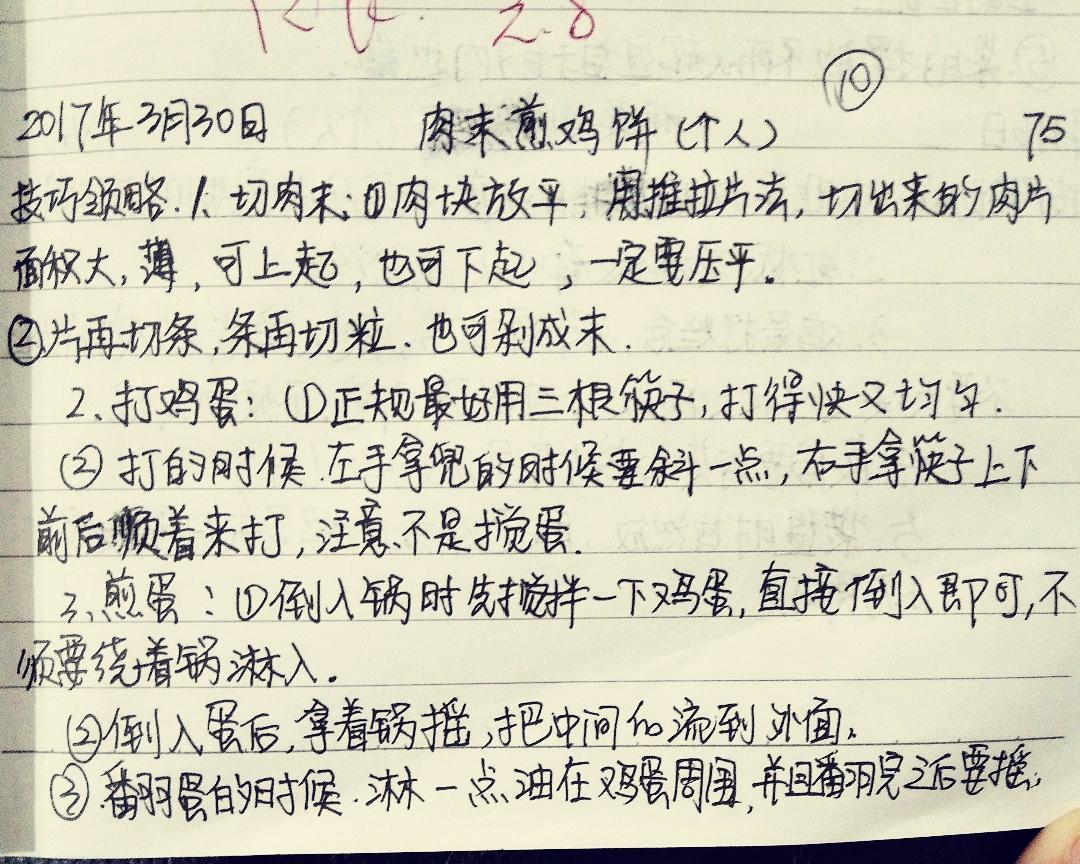 ⑩
2017年3月30日 肉末煎鸡饼(个人) 75
技巧领略.1、切肉末:①肉块放平,用推拉片法,切出来的肉片
面积大,薄,可上起,也可下起,一定要压平。
②片再切条,条再切粒.也可剁成末.
2、打鸡蛋:①正规最好用三根筷子,打得快又均匀.
②打的时候.左手拿兜的时候要斜一点,右手拿筷子上下
前后顺着来打,注意不是搅蛋.
3、煎蛋:①倒入锅时先搅拌一下鸡蛋,直接倒入即可,不
须要绕着锅淋入.
②倒入蛋后,拿着锅摇,把中间的流到外面.
③翻蛋的时候.淋一点油在鸡蛋周围,并且翻完之后要摇,